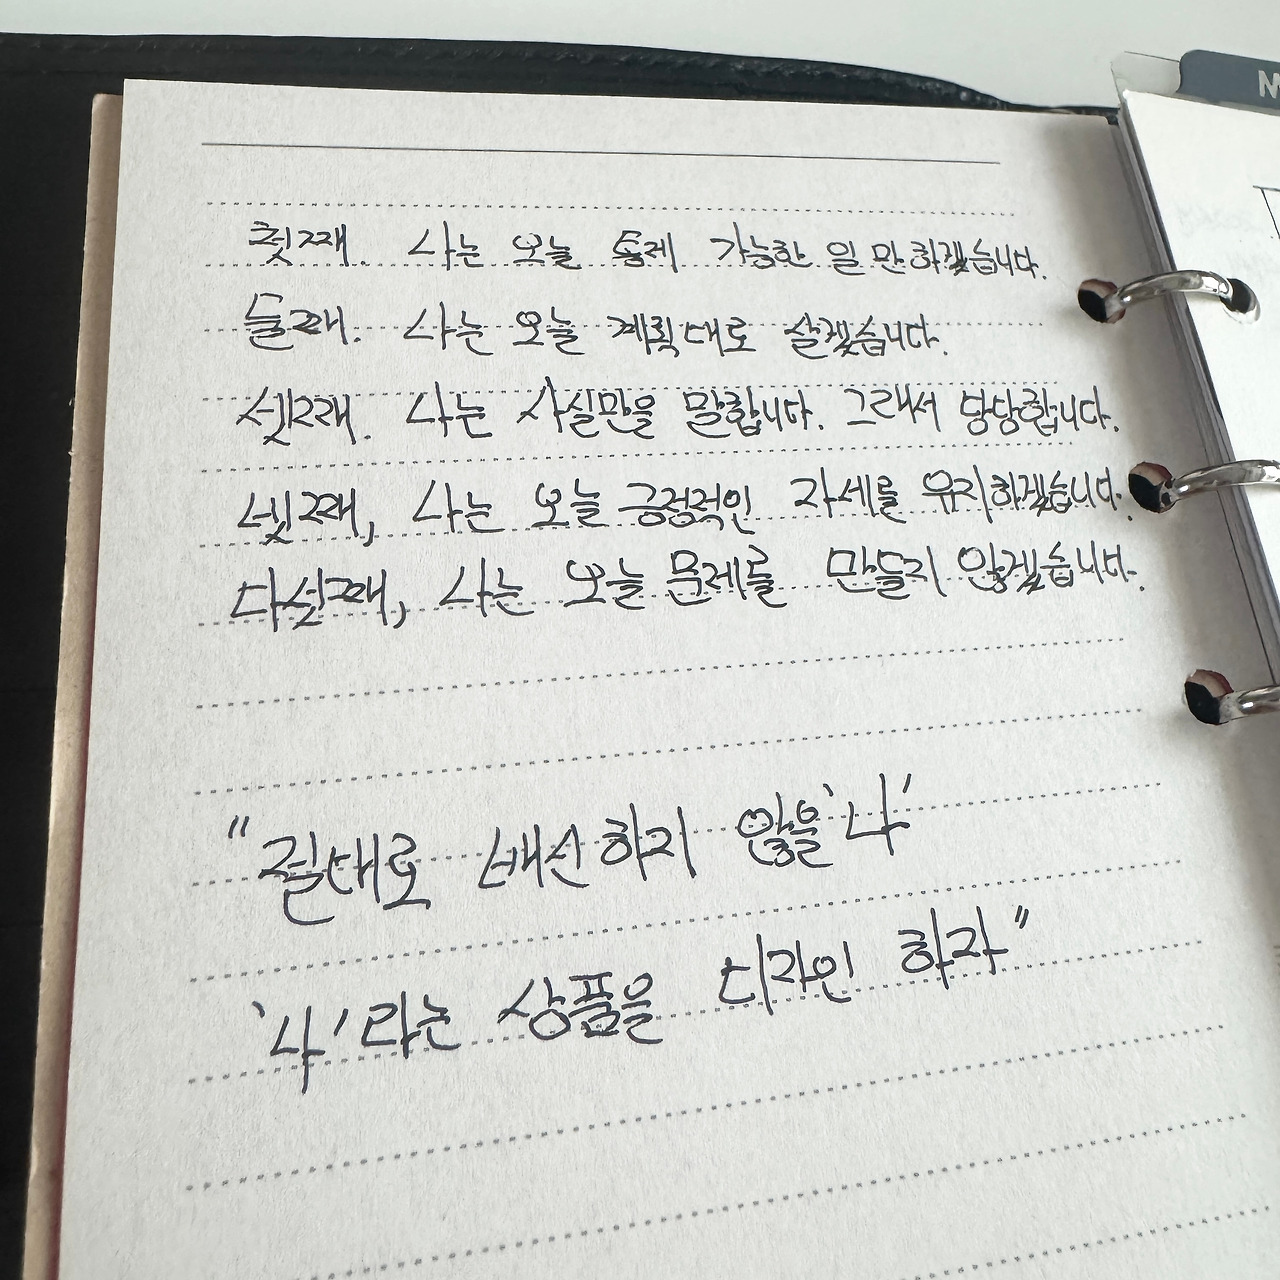 첫째. 나는 오늘 통제 가능한 일만 하겠습니다.
둘째. 나는 오늘 계획대로 살겠습니다.
셋째. 나는 사실만을 말합니다. 그래서 당당합니다.
넷째, 나는 오늘 긍정적인 자세를 유지하겠습니다.
다섯째, 나는 오늘 문제를 만들지 않겠습니다.
"절대로 배신하지 않을 '나'
'나'라는 상품을 디자인 하자"